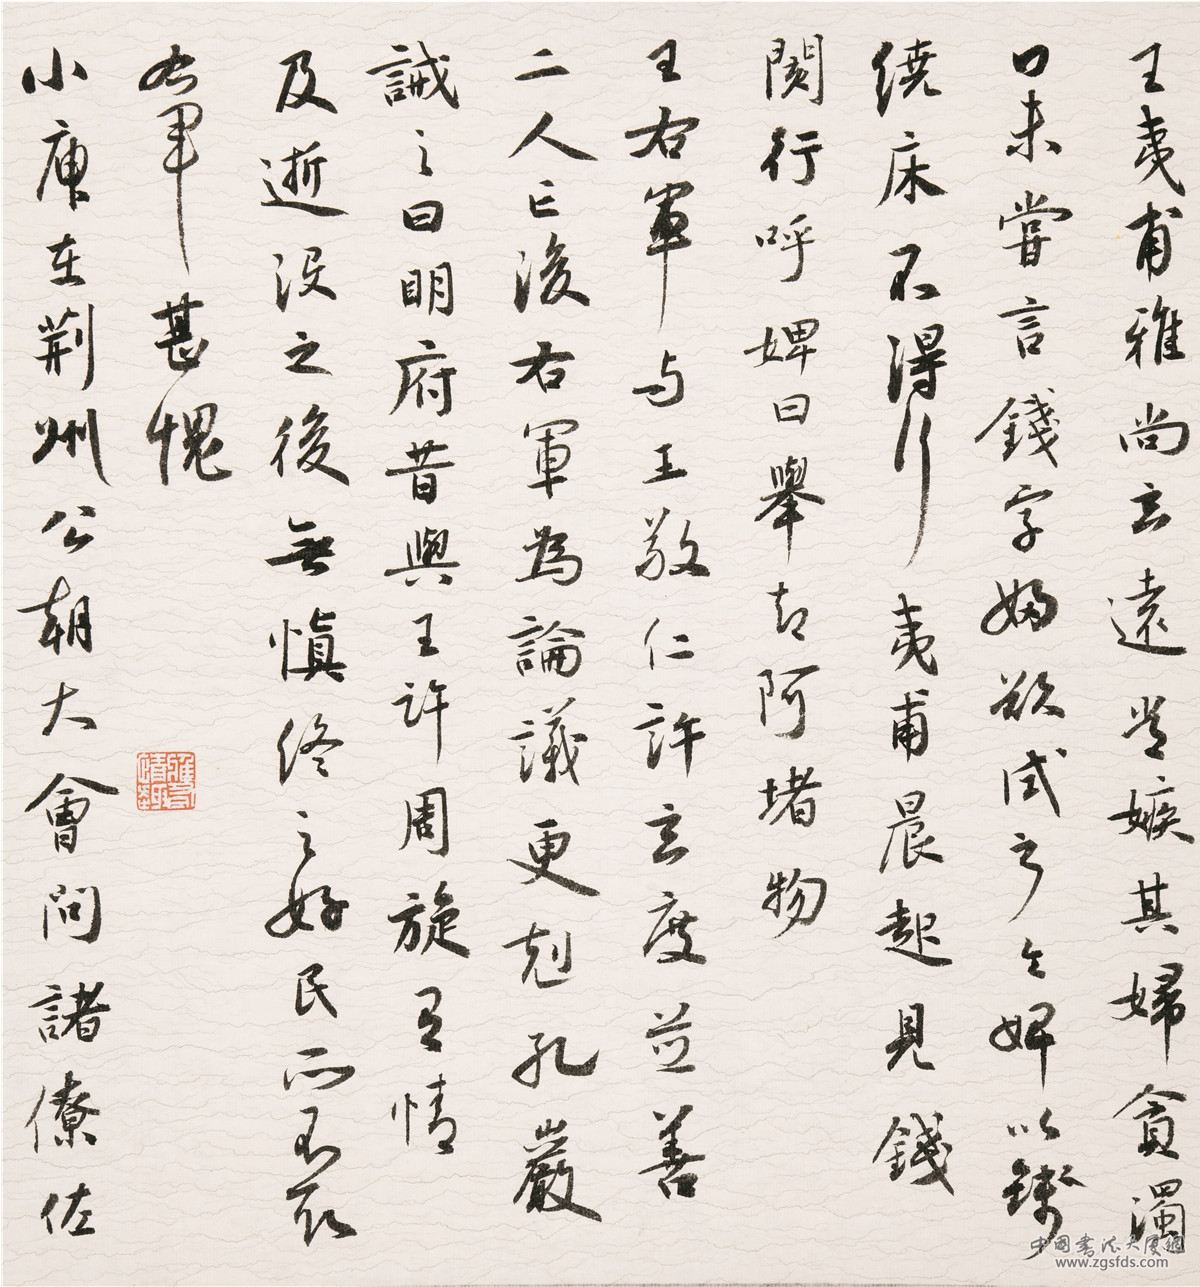 王夷甫雅尚玄遠常嫉其婦貪濁
口未嘗言錢字婦欲试之令婢以錢
繞床不得行夷甫晨起見錢
閡行呼婢曰舉却阿堵物
王右軍与王敬仁許玄度並善
二人亡後右軍為論議更剋孔巖
誡之曰明府昔與王許周旋有情
及逝没之後無慎终之好民所不取
右軍甚愧
小庾在荆州公朝大會問諸僚佐
中国书法大厦网
www.zgsfds.com